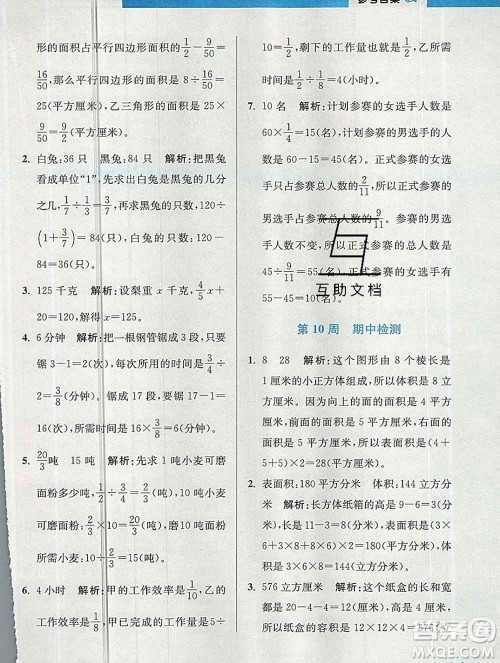 参考答案
形的面积占平行四边形面积的
16/50，那么平行四边形的面积是 8÷
16/50=25(平方厘米)，乙三角形的面积是 25×
9/50=9/2(平方厘米)。
2. 白兔:36 只 黑兔:84 只 解析:把黑兔
看成单位“1”，先求出白兔是黑兔的几分
之几，1/7÷1/3=3/7，黑兔的只数:120÷
(1+3/7)=84(只)，白兔的只数:84×
3/7=36(只)。
3. 125 千克 解析:设梨重 x 千克，
4. 6 分钟 解析:把一根钢管锯成 3 段，只
要 3-1=2(次)，每次所用的时间是
3/4÷2=3/8(分钟)。锯成 17 段:17-1=
16(次)，所需时间是 3/8×16=6(分钟)。
5. 20/3 吨 15 吨 解析:先求 1 吨小麦可磨
面粉多少吨，2/3÷1=2/3(吨)，10 吨小麦
可磨面粉:2/3×10=20/3(吨)，磨 10 吨面粉
所需小麦:10÷2/3=15(吨)。
6. 4 小时 解析:甲的工作效率是1/10，乙的
工作效率是1/8，甲已完成的工作量是 5÷
10=1/2，剩下的工作量也是1/2，乙所需时
间是1/2÷1/8=4(小时)。
7. 10 名 解析:计划参赛的女选手人数是
60×1/4=15(名)，计划参赛的男选手人
数是 60-15=45(名)。正式参赛的女选
手只占参赛总人数的2/11，所以正式参赛的
男选手占参赛总人数的9/11。参赛的男选
手人数不变，所以正式参赛的总人数是
45÷9/11=55(名)，正式参赛的女选手有
55-45=10(名)。
互助文档
第 10 周 期中检测
1. 8 28 解析:这个图形由 8 个棱长是
1 厘米的小正方体组成，所以体积是 8 立
方厘米。
因为从向上的面看的面积是 5 平方厘
米，前面的面积是 5 平方厘米，右面的面
积是 4 平方厘米，所以这个图形的表面
积是(5+5+4)×2=28(平方厘米)。
2. 表面积:180 平方分米 体积:144 立方分
米 解析:长方体纸箱的高是 9-6=3(分
米)，宽是 12-6-4(分米)，表面积是(3×
6+3×8+6×8)×2=180(平方分米)，体
积是 3×6×8=144(立方分米)。
3. 576 立方厘米 解析:这个纸盒的长和宽
都是 3×4=12(厘米)，高是 4 厘米，
所以纸盒的体积是 12×12×4=576(立
作业帮
MXQE.COM